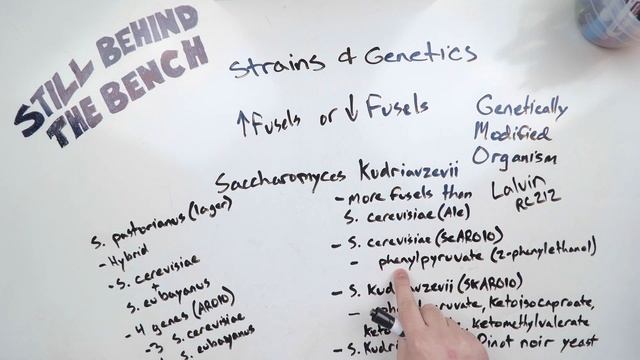 STILL BEHIND
THE BENCH
Strains & Genetics
↑Fusels or ↓Fusels
Genetically
Modified
Organism
Lalvin
RC212
Saccharomyces Kudriavzevii
- More fusels than
S. cerevisiae (Ale)
- S. cerevisiae (ScARO10)
- phenylpyruvate (2-phenylethanol)
- S. Kudriavzevii (SKARO10)
ketoisocaproate,
ketomethylvalerate
- S. Kudri Pinot noir yeast
S. pastorianus (lager)
- Hybrid
- S. cerevisiae
+
S. eubayanus
- 4 genes (ARO10)
- 3 S. cerevisiae
S. eubayanus